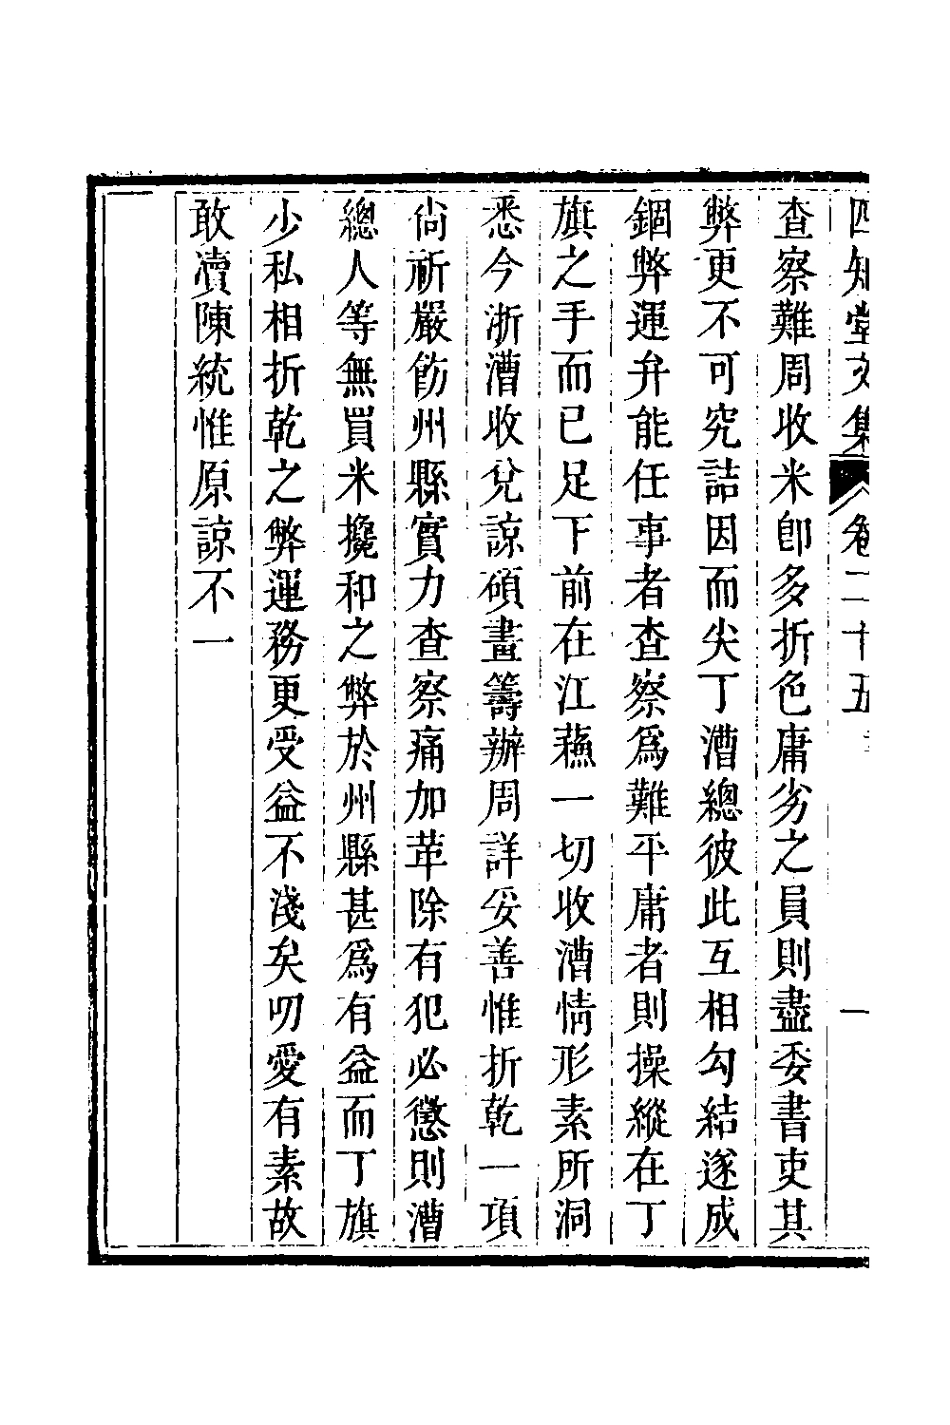 四知堂文集 卷二十五 一
查察難周收米卽多折色庸劣之員則盡委書吏其
弊更不可究詰因而尖丁漕總彼此互相勾結遂成
錮弊運弁能任事者查察爲難平庸者則操縱在丁
旗之手而已足下前在江蘓一切收漕情形素所洞
悉今浙漕收兌諒碩畫籌辦周詳妥善惟折乾一項
尙祈嚴飭州縣實力查察痛加革除有犯必懲則漕
總人等無買米攙和之弊於州縣甚爲有益而丁旗
少私相折乾之弊運務更受益不淺矣叨愛有素故
敢瀆陳統惟原諒不一